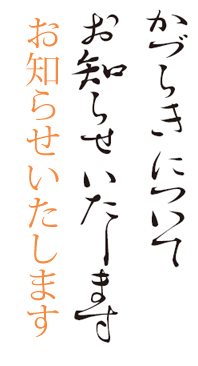 かづらきについて
お知らせいたします
お知らせいたします